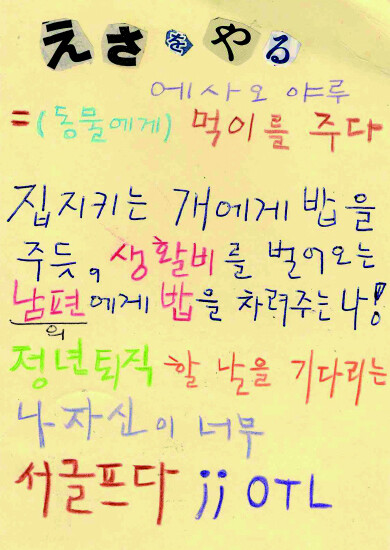 えさをやる
에사오 야루
=(동물에게) 먹이를 주다
집지키는 개에게 밥을
주듯, 생활비를 벌어오는
남편에게 밥을 차려주는 나!
의
정년퇴직 할 날을 기다리는
나 자신이 너무
서글프다 jj OTL